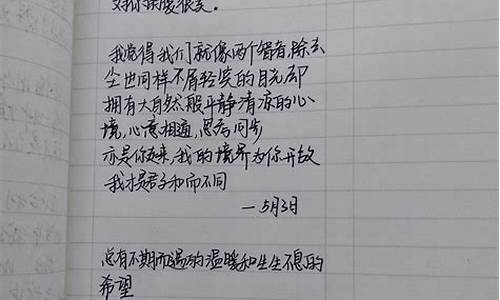 我觉得我们就像两个智者，除去
尘世同样不屑轻笑的目光却
拥有大自然般平静清凉的心
境，心意相通，思若同步
亦是你走来，我的境界为你开放
我才是君子和而不同
—5月3日
总有不期而遇的温暖和生生不息的
希望